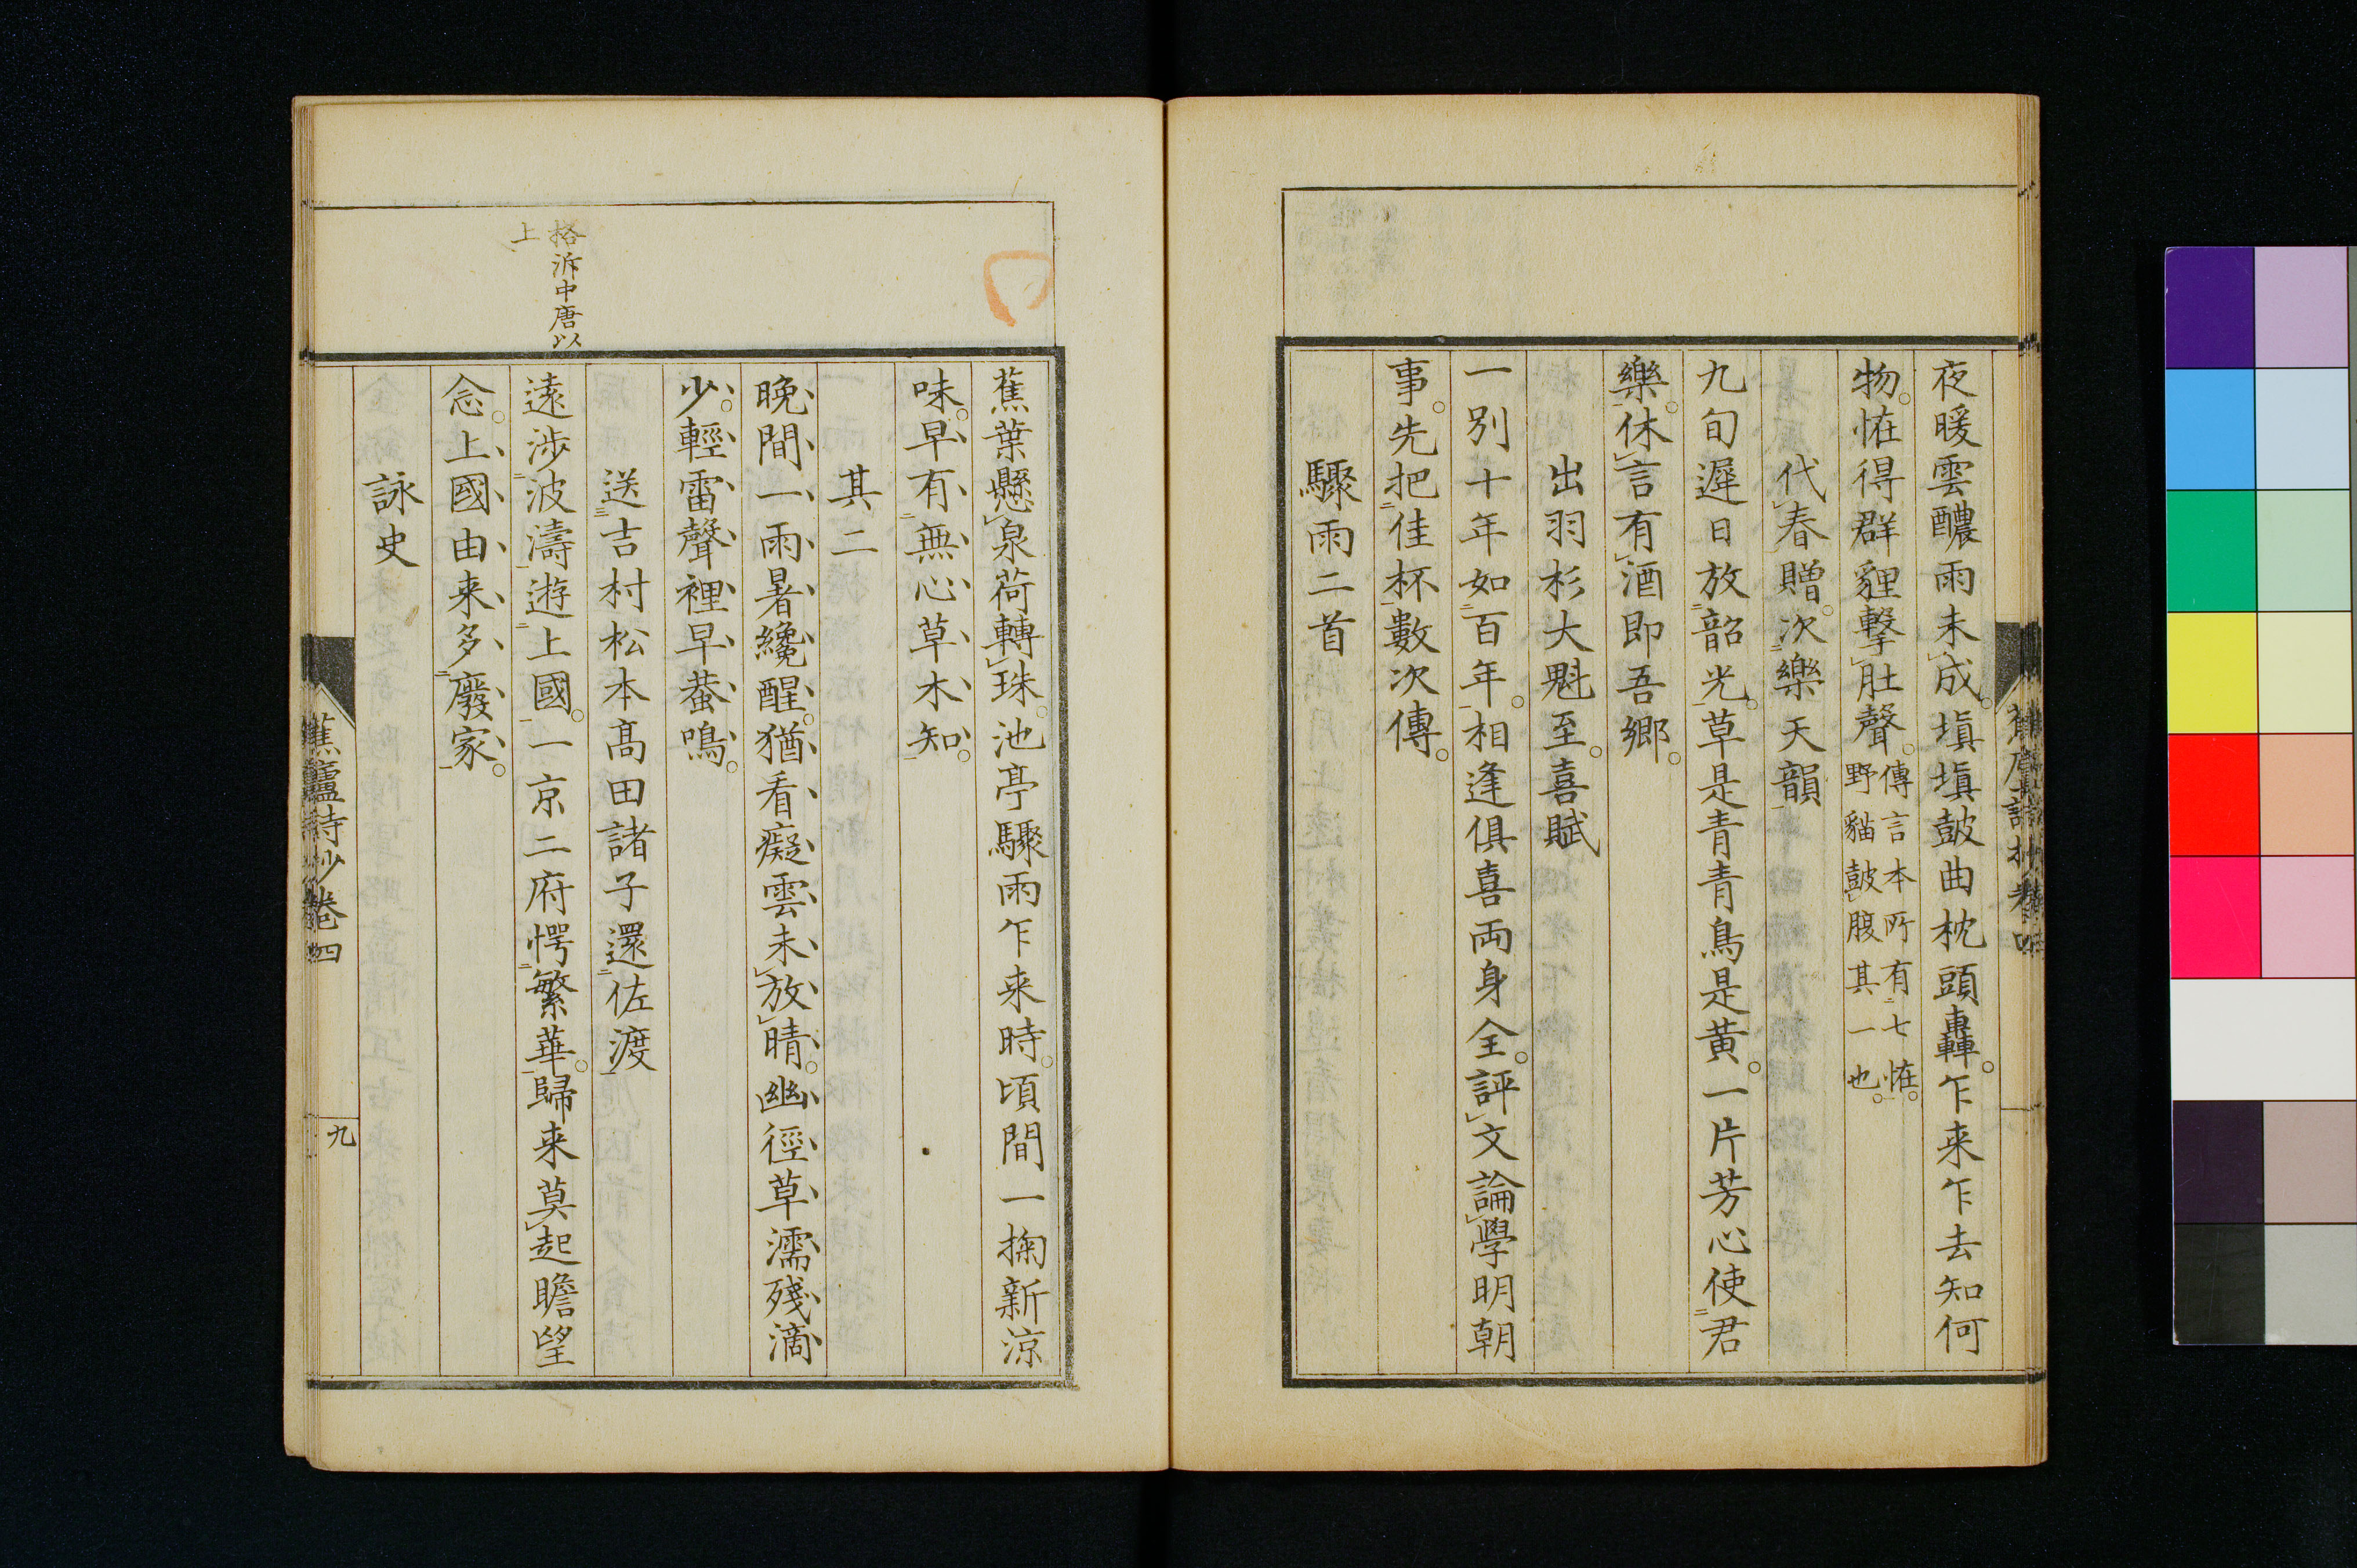 夜暖雲醲雨未成。塡塡鼓曲枕頭轟。乍来乍去知何
物。恠得群貍擊肚聲。傳言本所有七恠。
野貓鼓腹其一也。
代春贈。次樂天韻
九旬遲日放韶光。草是青青鳥是黄。一片芳心使君
樂。休言有酒即吾鄉。
出羽杉大魁至。喜賦
一別十年如百年。相逢俱喜両身全。評文論學明朝
事。先把佳杯數次傳。
驟雨二首
蕉葉懸泉荷轉珠。池亭驟雨乍来時。頃間一掬新涼
味。早有無心草木知。
其二
晚間一雨暑纔醒。猶看癡雲未放晴。幽徑草濡殘滴
少。輕雷聲裡早蛩鳴。
送吉村松本髙田諸子還佐渡
格泝中唐以
上
遠渉波濤遊上國。一京二府愕繁華。歸来莫起瞻望
念。上國由来多廢家。
詠史
蕉廬詩抄卷四
九